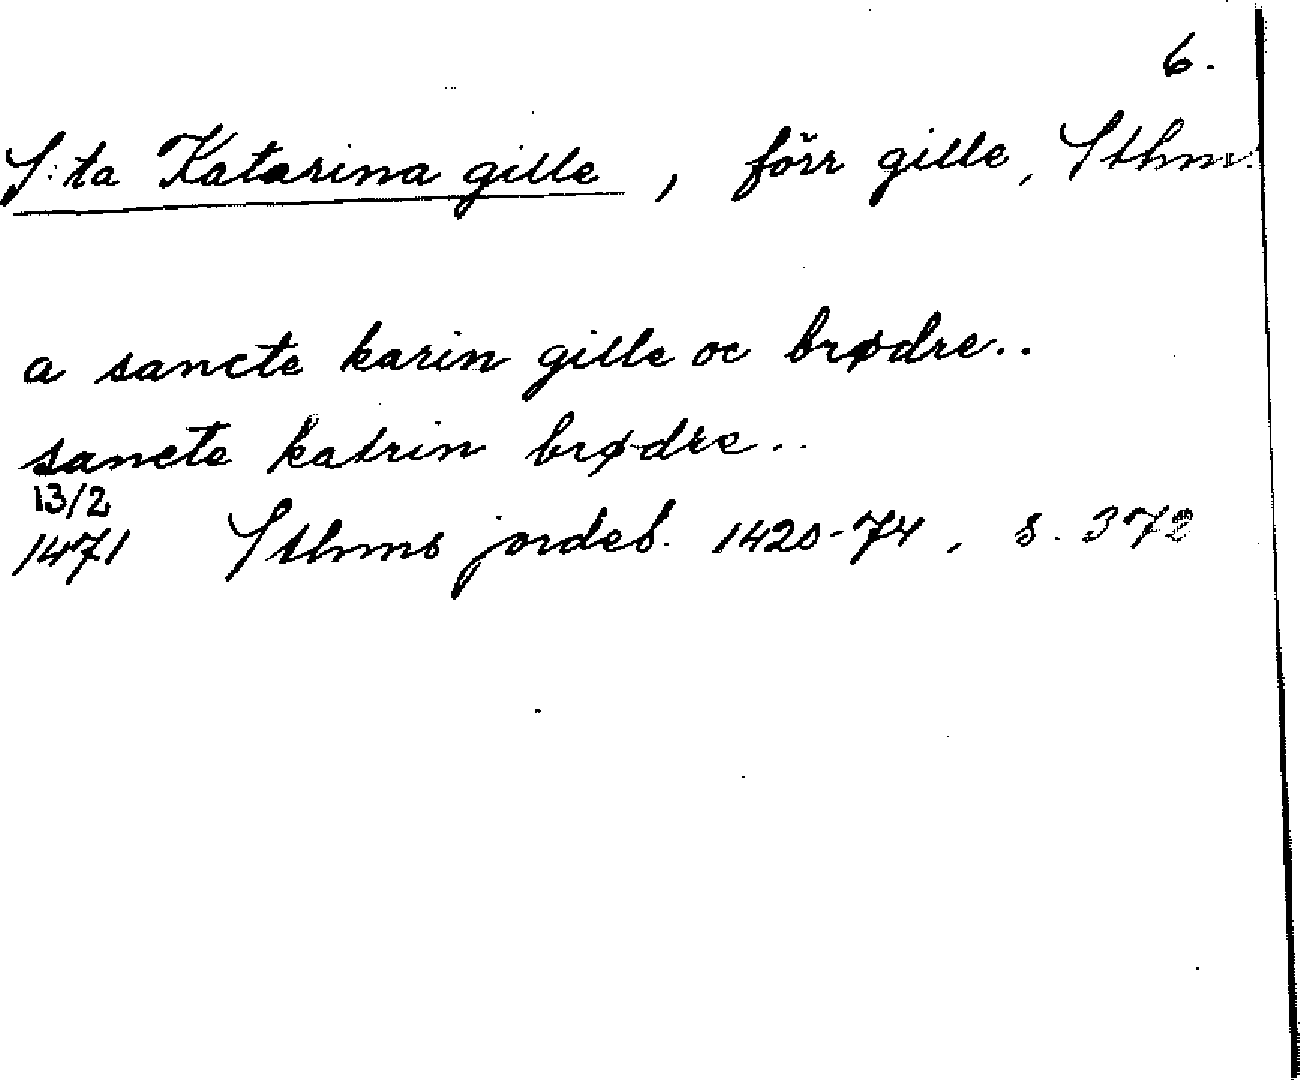 6.
S:ta Katarina gille, förr gille, Sthm.
a sancte karin gille oc brødre..
sancte katrin brødre..
13/2
1471 Sthms jordeb. 1420-74, s. 372